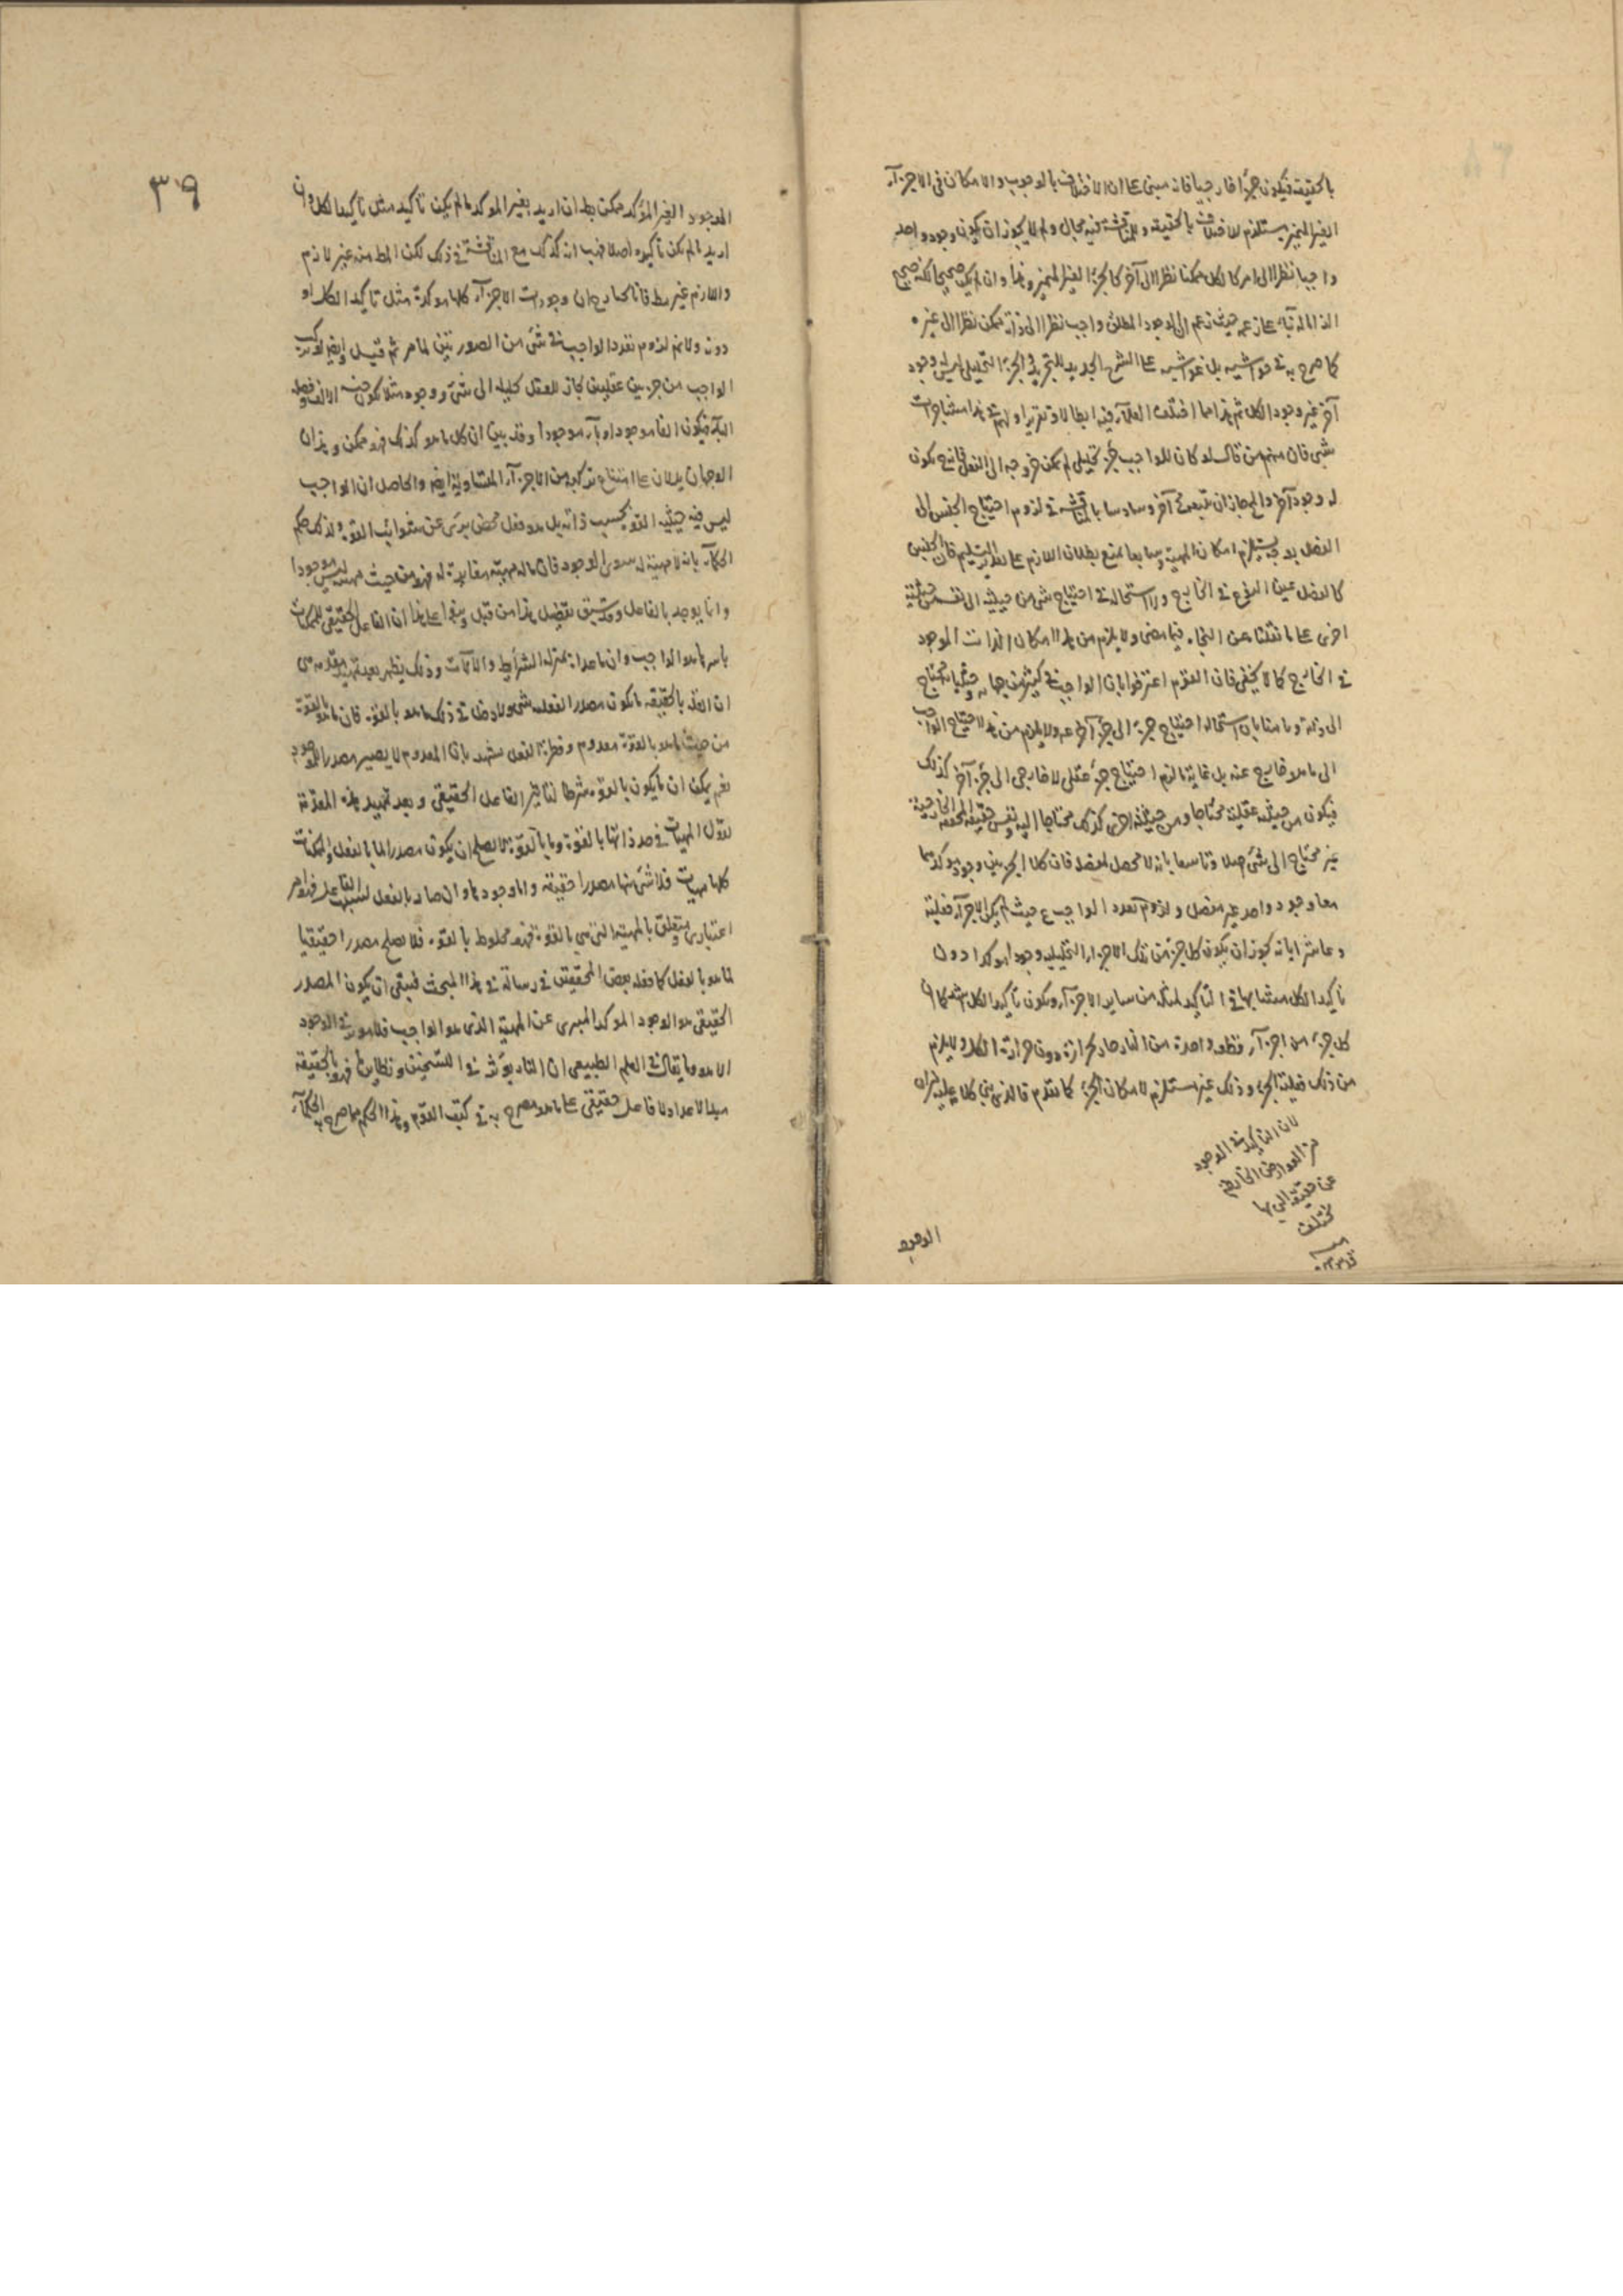 بالحقيقة فيكون جزأ خارجيا فانه مبنى على ان الاختلاف بالوجوب والامكان فى الاجزآء
الغير المتميز يستلزم الاختلاف بالحقيقة وللمناقشة فيه مجال ولم لا يجوز ان يكون وجود واحد
واجبا نظرا الى امر كالكل ممكنا نظرا الى آخر كالجزء الغير المتميز وهذا وان لم يكن صحيحا لكنه صحيح
حيث زعم ان الوجود المطلق واجب نظرا الى ذاته ممكن نظرا الى غيره
كما صرح به فى حواشيه على الشرح الجديد للتجريد الجزء التحليلى ليس له وجود
آخر غير وجود الكل ثم هذا مما اختلف العلمآء فيه ابطالا وتقريرا
شتى فان منهم من قال لو كان للواجب جزء تحليلى لم يمكن خروجه الى الفعل يكون
له وجود آخر وسادسا بالمناقشة فى لزوم احتياج الجنس الى
الفصل بوجه يستلزم امكان المهية وسابعا بمنع بطلان اللازم على تقدير التسليم فان الجنس
كالفصل عين النوع فى الخارج ولا استحالة فى احتياج شئ من حيثية الى نفسه من حيثية
اخرى على ما نقلنا عن فيما مضى ولا يلزم من هذا امكان الذات الموجود
فى الخارج كما لا يخفى فان القوم اعترفوا بان الواجب فى كثير من جهاته وحيثياته محتاج
الى ذاته وثامنا بان استحالة احتياج جزء الى جزء آخر ولا يلزم من هذا احتياج الواجب
الى ما هو خارج عنه بل غاية ما لزم احتياج جزء عقلى لا خارجى الى جزء آخر كذلك
فيكون من حيثية عقلية محتاجا ومن حيثية اخرى كذلك محتاجا اليه ونفس حقيقته المحققة الخارجية
غير محتاج الى شئ اصلا وتاسعا بانه لا محصل لفصله فان كلا الجزئين وجود مؤكد
معا وجود واحد غير منفصل ولزوم تعدد الواجب حيث لم يكن الاجزآء فعلية
وعاشرا بانه يجوز ان يكون كل جزء من تلك الاجزاء التحليلية وجودا مؤكدا دون
تأكيد الكل متشابها فى التأكيد لمثله من ساير الاجزآء ويكون تأكيد الكل اشد كما ان
كل جزء من اجزآء قطعة واحدة من النار حار بحرارة دون حرارة الكل ولا يلزم
من ذلك فعلية الجزء وذلك غير مستلزم لامكان الجزء كما تقدم فالذى بنى كلامه عليه ان
لان التأكيد فى الوجود
من العوارض الخارجة
عن حقيقة
تختلف
منه
الوجود
٣٩
الموجود الغير المؤكد ممكن بط ان اريد بغير المؤكد ما لم يكن تأكيده مثل تأكيد الكل وان
اريد ما لم يكن تأكيده اصلا فهب انه كذلك مع المناقشة فى ذلك لكن الملزوم منه غير لازم
واللازم غير بط فانا نختار ان وجودات الاجزآء كلها مؤكدة مثل تأكيد الكل او
دونه ولا ثم لزوم تعدد الواجب فى شئ من الصورتين لما مر ثم قيل وايضا لو تركب
الواجب من جزئين عقليين لجاز للعقل تحليله الى شئ ووجود مثلا
فيكون الفا موجودا وبآء موجودا وقد بين ان كل ما هو كذلك فهو ممكن وهذان
الوجهان يدلان على امتناع تركبه من الاجزآء المتساوية ايضا والحاصل ان الواجب
ليس فيه حيثية القوة بحسب ذاته بل هو فعل محض برئ عن شوائب القوة ولذلك حكم
الحكمآء بانه لا مهية له سوى الوجود فان ما له مهية مغايرة له فهو من حيث مهيته ليس موجودا
وانما يوجد بالفاعل وقد سبق تفصيل هذا من قبل وبنوا على هذا ان الفاعل الحقيقى للممكنات
باسرها هو الواجب وان ما عداه بمنزلة الشرائط والآلات وذلك يظهر بعد تمهيد مقدمة هى
ان الفاعل بالحقيقة ما يكون مصدر الفعلية شئ ولا دخل فى ذلك لما هو بالقوة فان ما هو بالقوة
من حيث ما هو بالقوة معدوم وفطرة العقل تشهد بان المعدوم لا يصير مصدرا للموجود
نعم يمكن ان ما يكون بالقوة شرطا لتأثير الفاعل الحقيقى وبعد تمهيد هذه المقدمة
نقول المهيات فى حد ذاتها بالقوة وما بالقوة لا يصلح ان يكون مصدرا لما بالفعل والممكنات
كلها مهيات فلا شئ منها مصدرا حقيقة واما وجودها وان صار بالفعل بسبب الفاعل فهو امر
اعتبارى متعلق بالمهية التى هى بالقوة فهو مخلوط بالقوة فلا يصلح مصدرا حقيقيا
لما هو بالفعل كما فعله بعض المحققين فى رسالة فى هذا المبحث فبقى ان يكون المصدر
الحقيقى هو الوجود المؤكد المبرى عن المهية الذى هو الواجب فلا مؤثر فى الوجود
الا هو وما يقال فى العلم الطبيعى ان النار يؤثر فى التسخين ونظايره فهو بالحقيقة
مبدأ الاعداد لا فاعل حقيقى على ما هو مصرح به فى كتب القوم وهذا الحكم مما صرح به الحكمآء